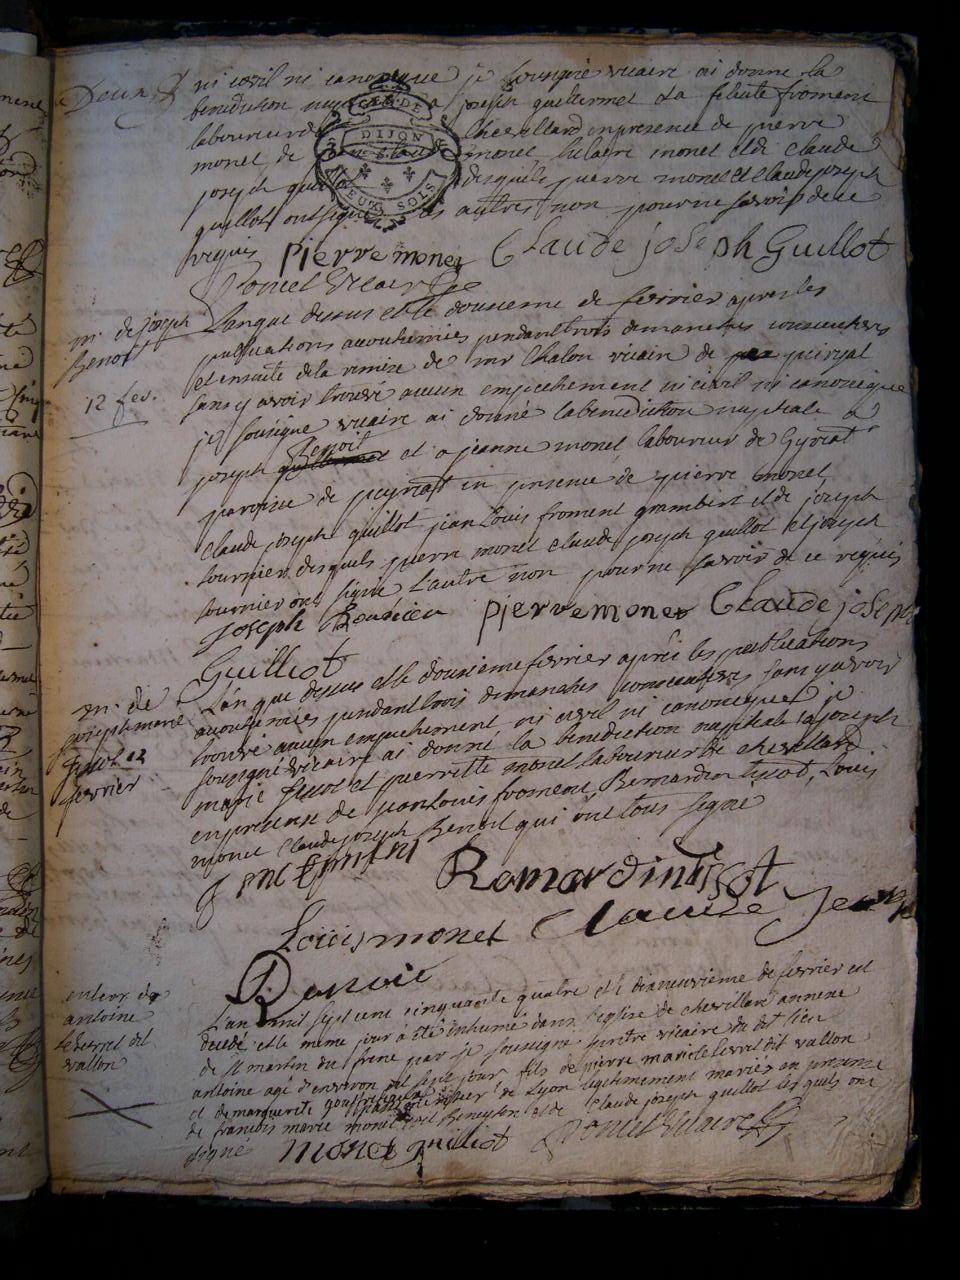 Deux
ni civil ni canonique je soussigné vicaire ai donné la
benediction joseph guillermet et a felicite froment
laboureurs de chevillard en presence de pierre
GEN DE
DIJON
DEUX SOLS
monet de monet hilaire monet et de claude
joseph desquels pierre monet et claude joseph
guillot ont signé les autres non pour ne savoir de ce
requis
pierre monet Claude joseph Guillot
Poncet vicaire
m. de joseph
benoit
12 fev.
L'an que dessus et le douzieme de fevrier apres les
publications accoutumées pendant trois dimanches consecutives
et ensuite de la remise de mr Chalon vicaire de peyriat
sans y avoir trouvé aucun empechement ni civil ni canonique
je soussigné vicaire ai donné la benediction nuptiale a
joseph Benoit et a jeanne monet laboureur de
paroisse de peyriat en presence de pierre monet
claude joseph guillot jean louis froment et de joseph
fournier desquels pierre monet claude joseph guillot et joseph
fournier ont signé l'autre non pour ne savoir de ce requis
Joseph pierre monet Claude joseph
Guilliot
m. de
joseph marie
tissot 12
fevrier
L'an que dessus et le douzieme fevrier après les publications
accoutumées pendant trois dimanches consecutives sans y avoir
trouvé aucun empechement ni civil ni canonique je
soussigné vicaire ai donné la benediction nuptiale a joseph
marie tissot et pierrette monet laboureur de chevillard
en presence de jean louis froment, Bernardin tissot, Louis
monet claude joseph Benoit qui ont tous signé
Bernardin tissot
Louis monet Claude Jean
Benoit
enterr de
antoine
levrel dit
vallon
L'an mil sept cent cinquante quatre et le dixneuvieme de fevrier est
decedé et le meme jour a été inhumé dans l'eglise de chevillard annexe
de st martin du frene par je soussigné pretre vicaire du dit lieu
antoine agé d'environ sept jour fils de pierre marie levrel dit vallon
et de marguerite de Lyon legitimement mariés en presence
de francois marie monet et de claude joseph guillot lesquels ont
signé monet guilliot Poncet vicaire